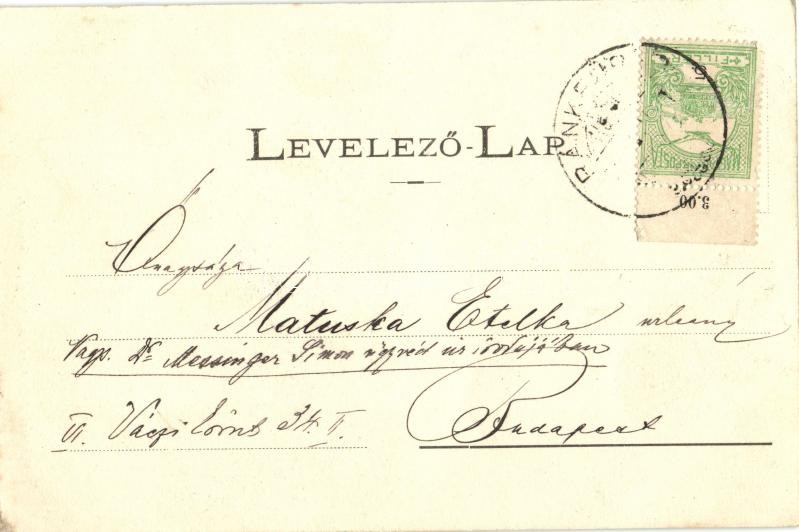 LEVELEZŐ-LAP
RÁNK
FILLÉR
MAGYAR POSTA
5
3.00
Őnagysága
Matuska Etelka urleány
Nags. Dr Messinger Simon ügyvéd ur irodájában
VI. Váczi körut 34. II.
Budapest